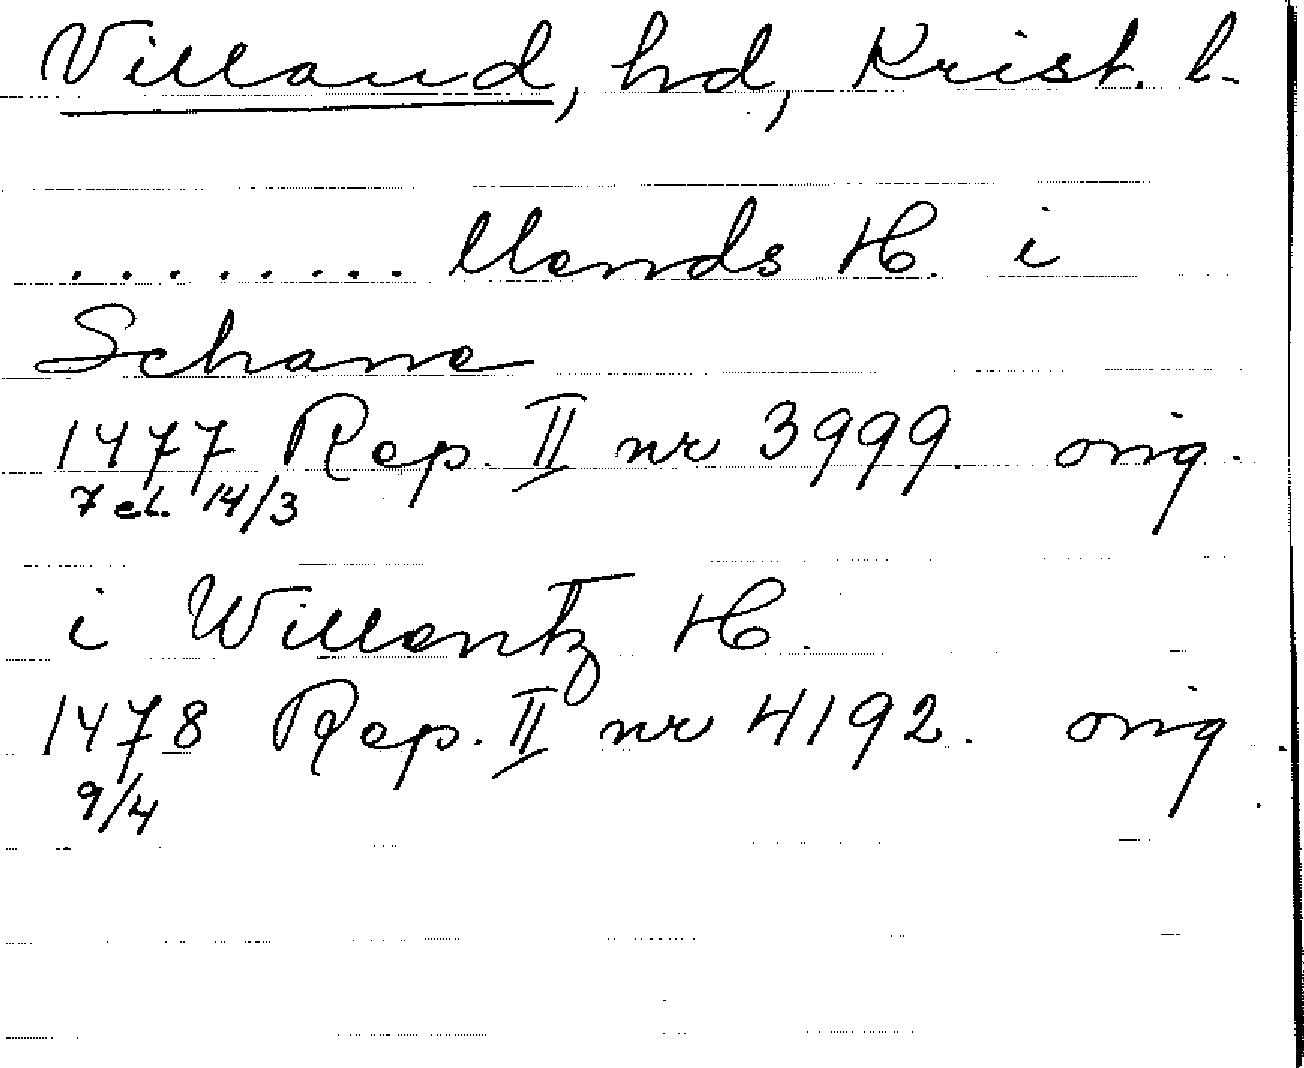 Villand, hd, Krist. l.
. . . . . . . . llands H. i
Schane
1477 Rep. II nr 3999. orig.
7 el. 14/3
i Willantz H.
1478 Rep. II nr 4192. orig.
9/4